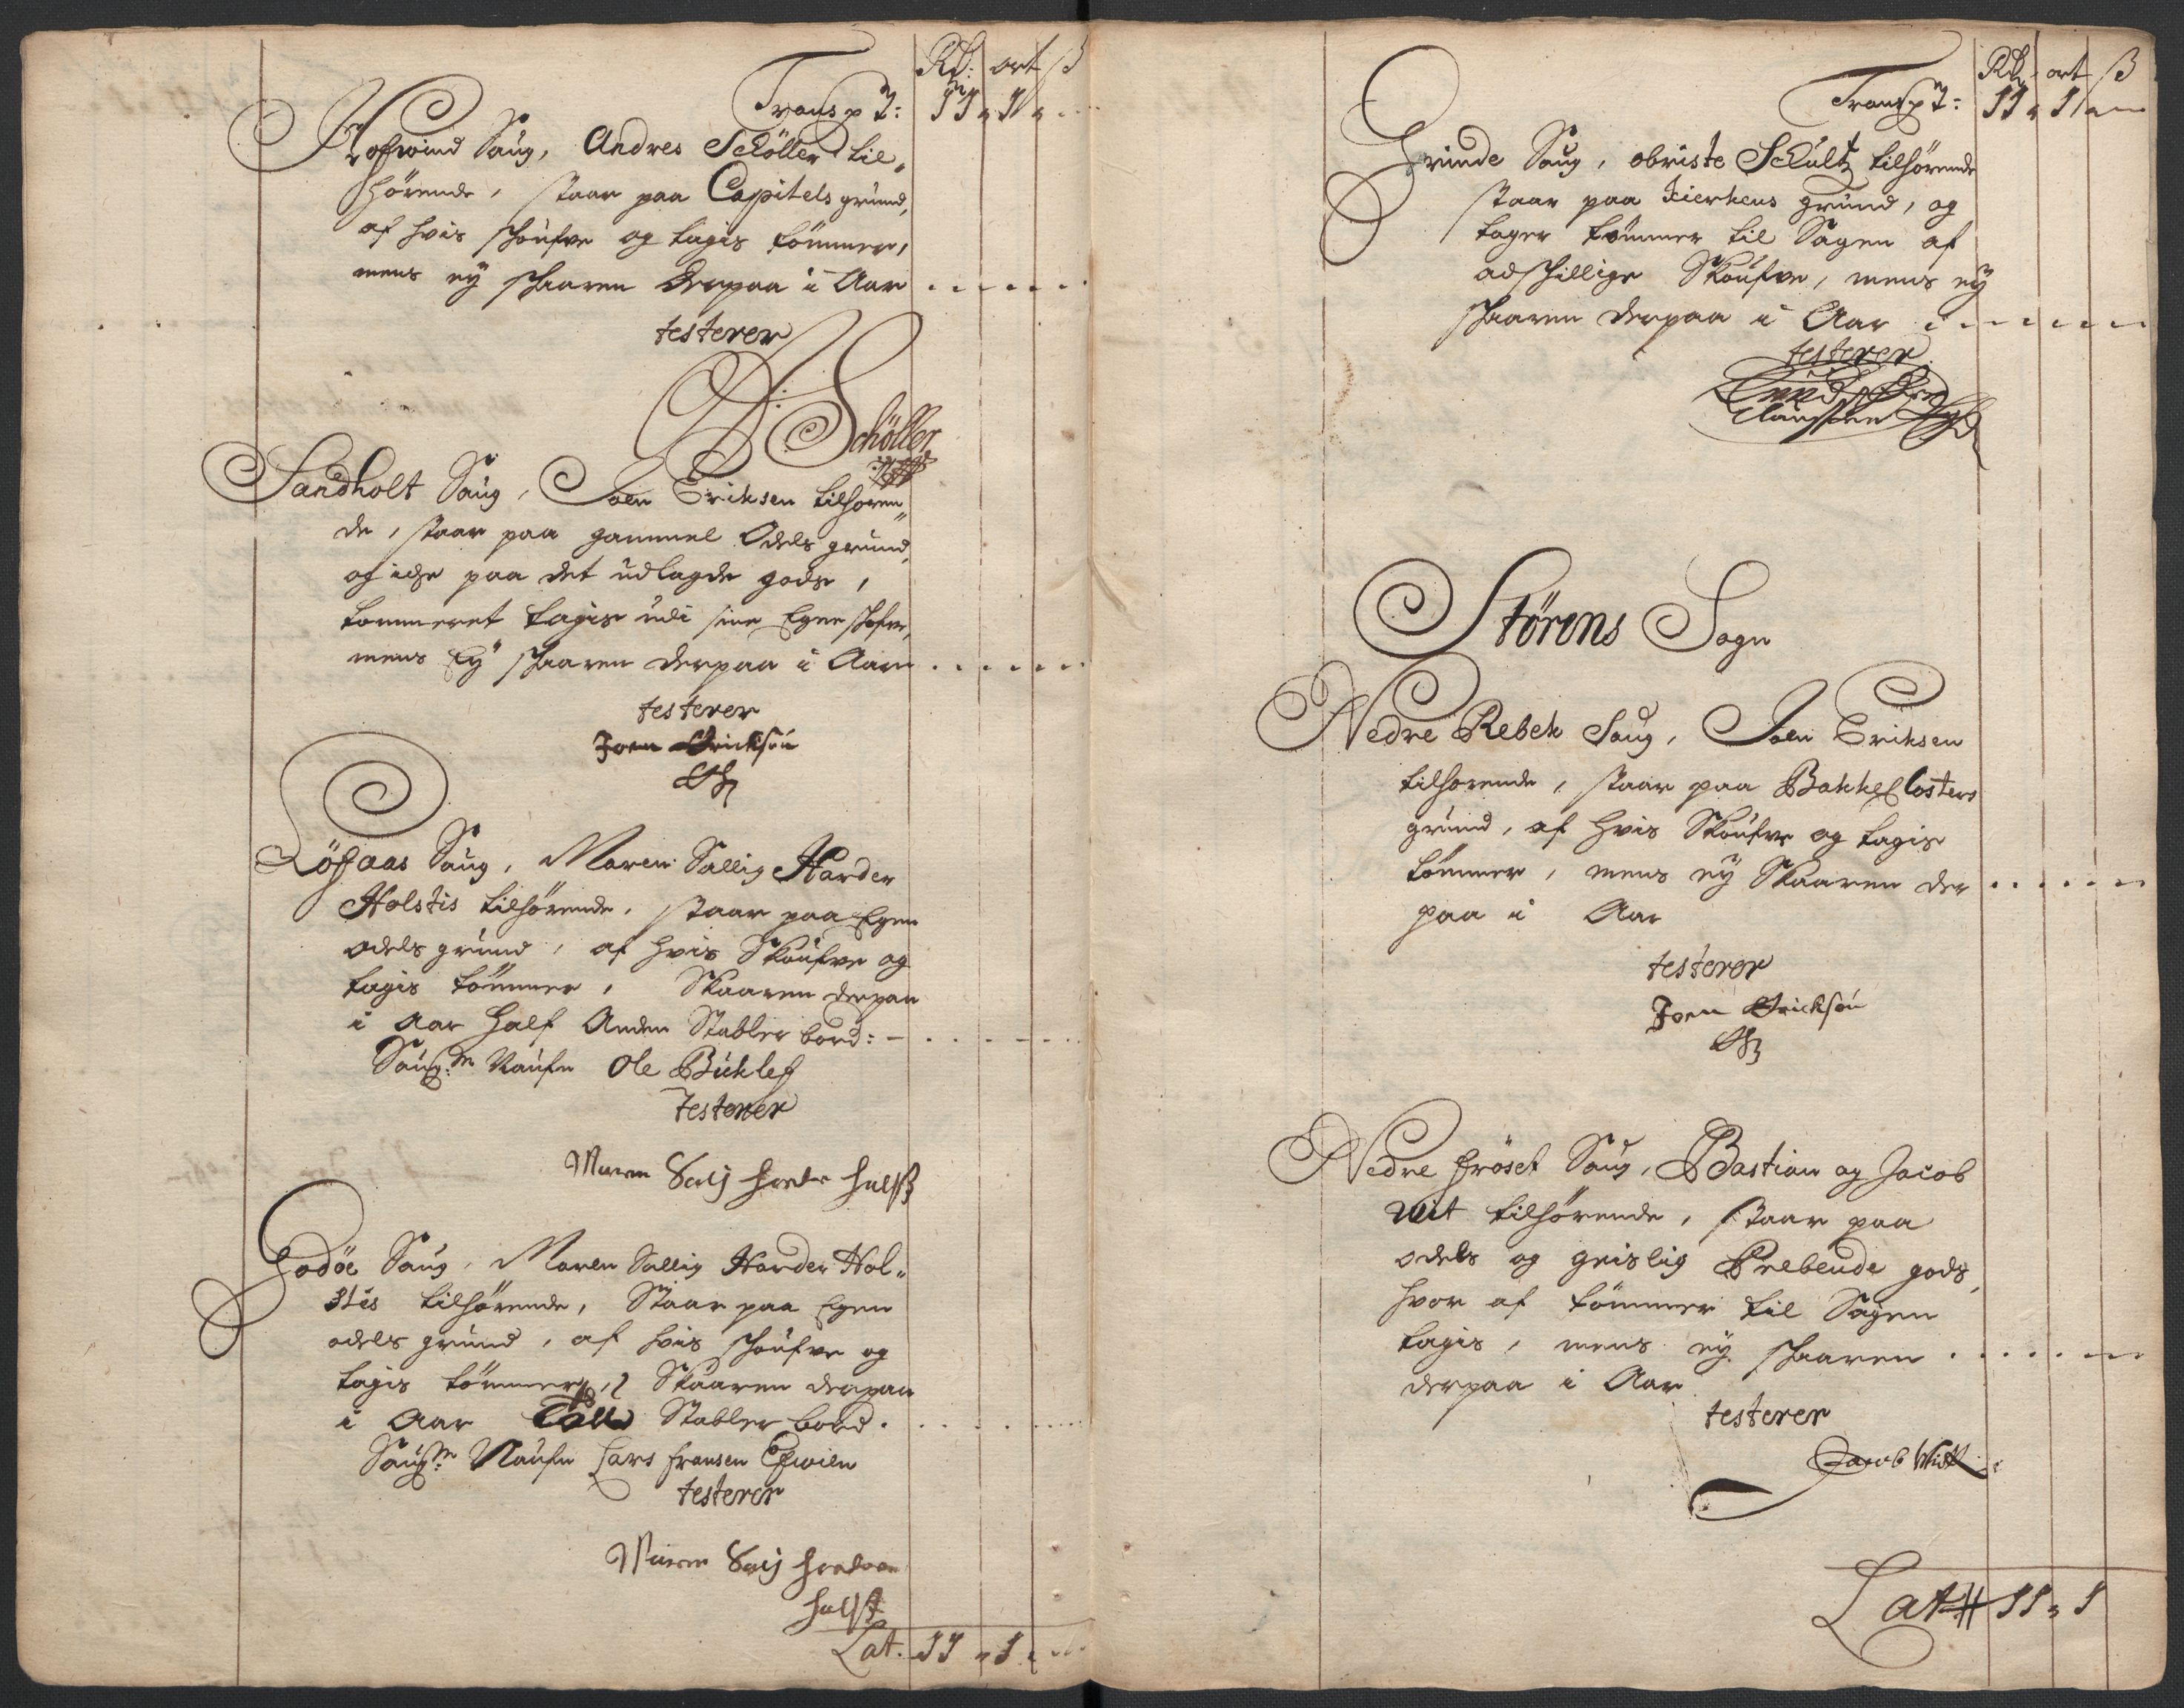 Rd: ort ß
Transpt: 11 „ 1 „
Hofwind Saug, Andres Schöller til„
hörende, staar paa Capitels grund,
af hvis schoufve og tagis tömmer,
mens ey schaaren derpaa i Aar
testerer
Schöller
Sandholt Saug, Joen Eriksen tilhören„
de, staar paa gammel Odels grund,
og iche paa det udlagde gods,
tommeret tagis udi sine Egne schofve,
mens Ey schaaren derpaa i Aar
testerer
Joen Erichsøn
Löhaas Saug, Maren Sallig Harder
Holstis tilhörende, staar paa Egen
odels grund, af hvis Skoufve og
tagis tömmer, Skaaren derpaa
i Aar half Anden Stabler bord:
Saugm: Naufn Ole
testerer
Maren Salig
Godöe Saug, Maren Sallig Harder Hol„
stis tilhörende, Staar paa Egen
odels grund, af hvis schoufve og
tagis tömmer, Skaaren derpaa
i Aar Stabler bord.
Saugm: Naufn Lars fransen
testerer
Maren
Lat. 11 „ 1
Rd ort ß
Transpt: 11 „ 1
Grinde Saug, obriste Schultz tilhörende
staar paa kierkens grund, og
tager tömmer til Sagen af
adschillige Skoufve, mens ey
schaaren derpaa i Aar
testerer
Claussen
Störens Sogn
Nedre Rebek Saug, Joen Eriksen
tilhörende, staar paa Bakke Closters
grund, af hvis Skoufve og tagis
tömmer, mens ey Skaaren der
paa i Aar
testerer
Joen Erichsøn
Nedre fröset Saug, Bastian og Jacob
Wit tilhörende, staar paa
odels og geislig Prebende gods,
hvor af tömmer til Sagen
tagis, mens ey schaaren
derpaa i Aar
testerer
Jacob Witt
Lat 11 „ 1